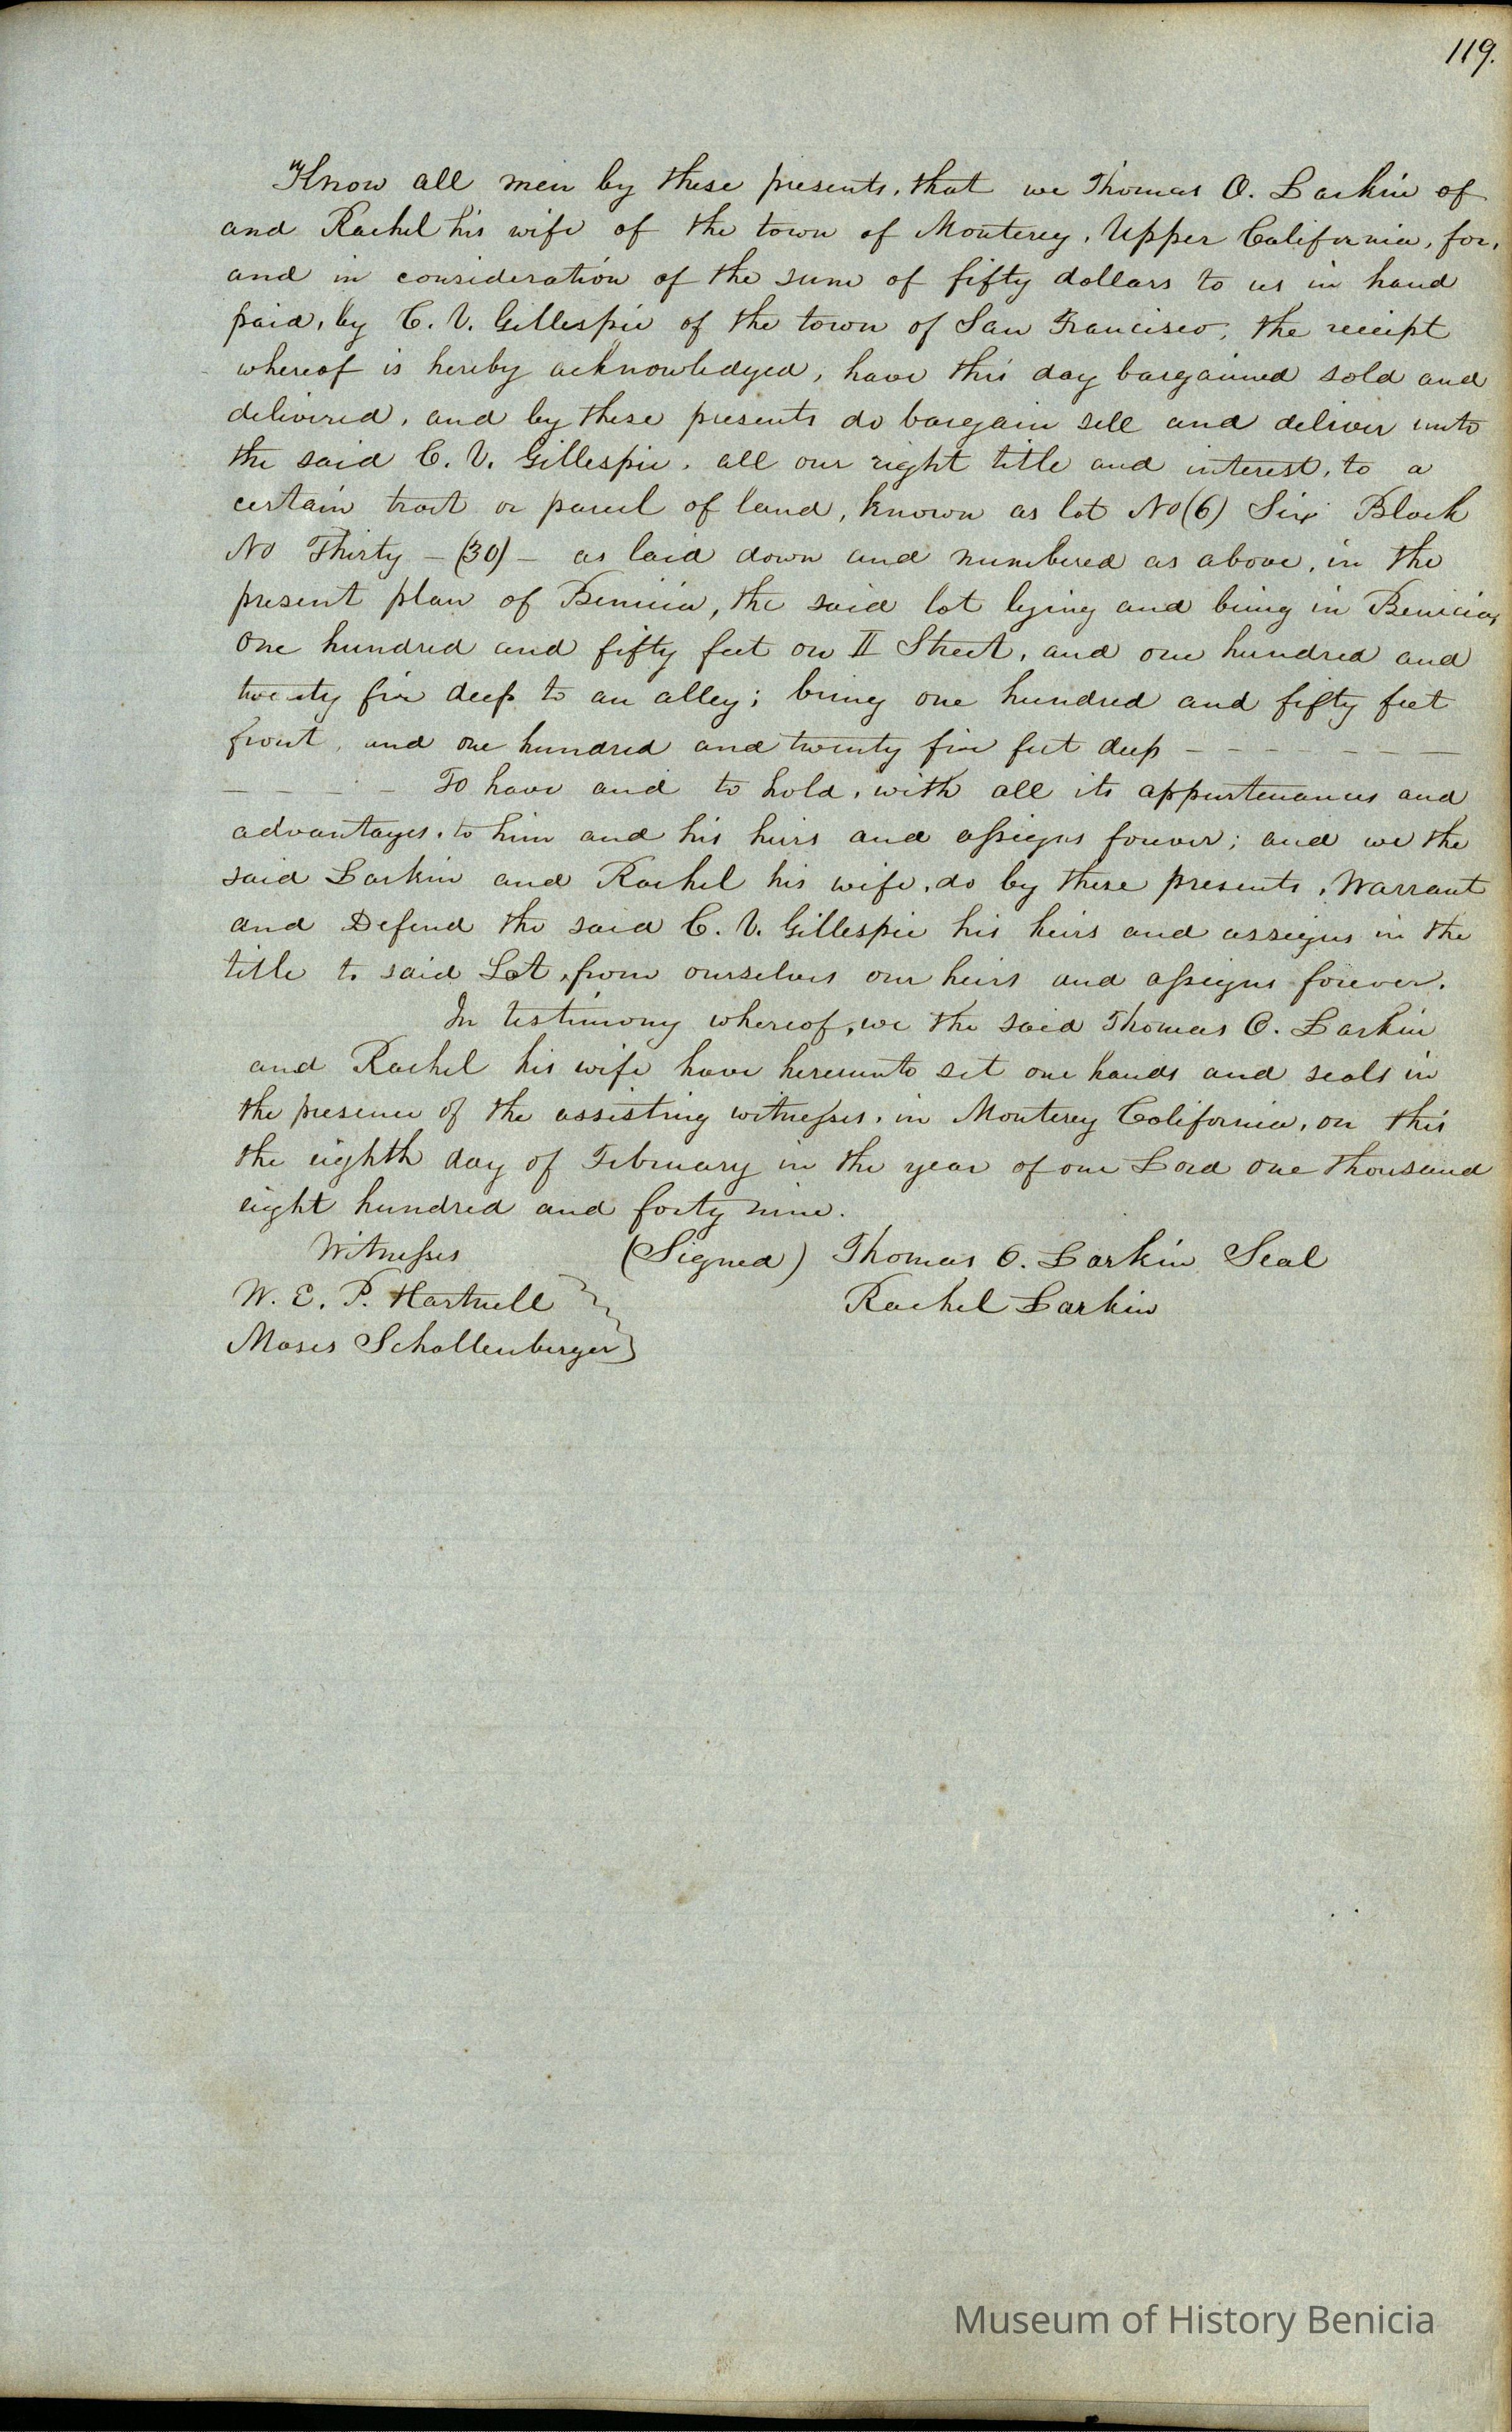 119.
"Know all men by these presents, that we Thomas O. Larkin of
and Rachel his wife of the town of Monterey, Upper California, for,
and in consideration of the sum of fifty dollars to us in hand
paid, by C. V. Gillespie of the town of San Francisco, the receipt
whereof is hereby acknowledged, have this day bargained sold and
delivered, and by these presents do bargain sell and deliver unto
the said C. V. Gillespie, all our right title and interest, to a
certain tract or parcel of land, known as lot No (6) Six Block
No Thirty - (30) - as laid down and numbered as above, in the
present plan of Benicia, the said lot lying and being in Benicia,
one hundred and fifty feet on II Street, and one hundred and
twenty five deep to an alley; being one hundred and fifty feet
front, and one hundred and twenty five feet deep - - - - - - -
- - - - - To have and to hold, with all its appurtenances and
advantages, to him and his heirs and assigns forever; and we the
said Larkin and Rachel his wife, do by these presents, Warrant
and Defend the said C. V. Gillespie his heirs and assigns in the
title to said Lot, from ourselves our heirs and assigns forever.
In testimony whereof, we the said Thomas O. Larkin
and Rachel his wife have hereunto set our hands and seals in
the presence of the assisting witnesses, in Monterey California, on this
the eighth day of February in the year of our Lord one thousand
eight hundred and forty nine.
Witnesses (Signed) Thomas O. Larkin Seal
W. E. P. Hartnell Rachel Larkin
Moses Schallenberger
Museum of History Benicia